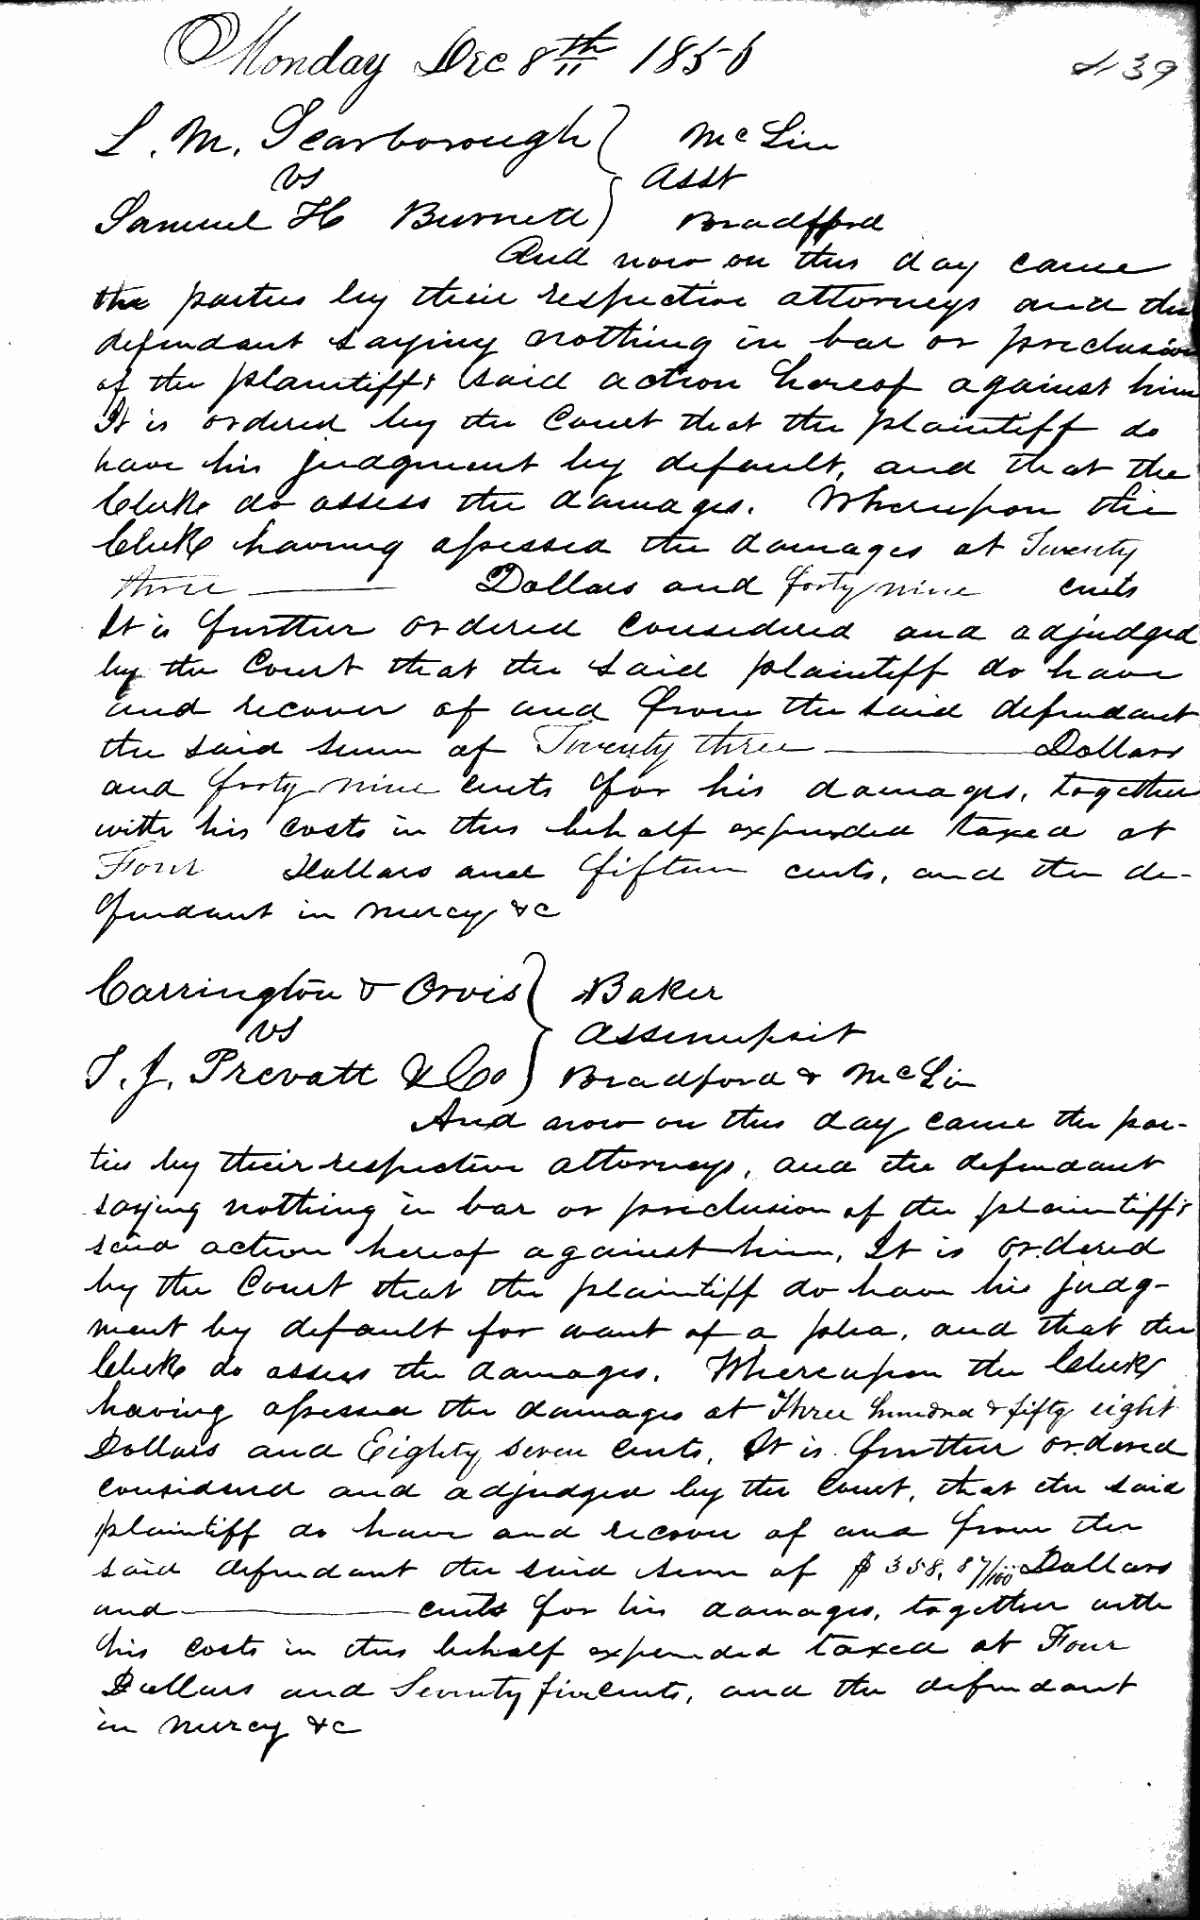 Monday Dec 8th 1856
439
L. M. Scarborough } McLin
vs } Asst
Samuel H Burnett } Bradford
And now on this day came
the parties by their respective attorneys and the
defendant saying nothing in bar or preclusion
of the plaintiffs said action hereof against him
It is ordered by the Court that the plaintiff do
have his judgment by default, and that the
Clerk do assess the damages. Whereupon the
Clerk having assessed the damages at Twenty
three ——— Dollars and forty nine cents
It is further ordered considered and adjudged
by the Court that the said plaintiff do have
and recover of and from the said defendant
the said sum of Twenty three ——— Dollars
and forty nine cents for his damages, together
with his costs in this behalf expended taxed at
Four Dollars and fifteen cents, and the de-
fendant in mercy &c
Carrington & Orvis } Baker
vs } Assumpsit
T. J. Prevatt & Co } Bradford & McLin
And now on this day came the par-
ties by their respective attorneys, and the defendant
saying nothing in bar or preclusion of the plaintiffs
said action hereof against him, It is ordered
by the Court that the plaintiff do have his judg-
ment by default for want of a plea, and that the
Clerk do assess the damages. Whereupon the Clerk
having assessed the damages at Three hundred & fifty eight
Dollars and Eighty seven cents, It is further ordered
considered and adjudged by the Court, that the said
plaintiff do have and recover of and from the
said defendant the said sum of $358,87/100 Dollars
and ——— cents for his damages, together with
his costs in this behalf expended taxed at Four
Dollars and Seventy five cents, and the defendant
in mercy &c